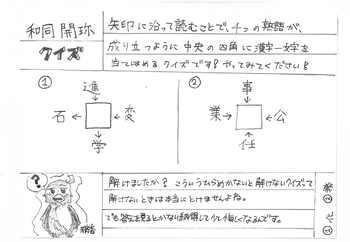 和同開珎
クイズ
矢印に沿って読むことで、4つの熟語が、
成り立つように中央の四角に漢字一文字を
当てはめるクイズです!やってみてください!
①
進
石 変
学
②
事
業 公
任
?
解けましたか?こういうひらめかないと解けないクイズって
解けないときは本当にとけませんよね。
でも答えを見るとかなり納得して少し悔しくなるんです。
①化 ②務